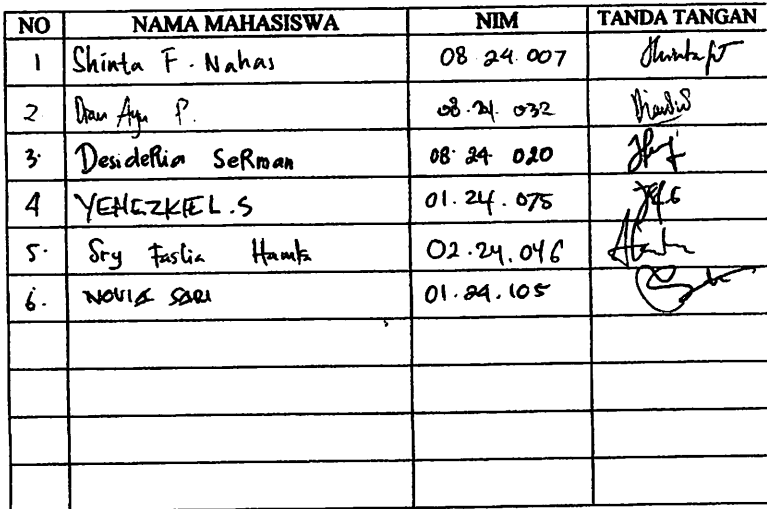 NO NAMA MAHASISWA NIM TANDA TANGAN
1 Shinta F. Nahas 08.24.007 Shinta
2. Dian Ayu P. 08.24.032
3. Desideria Serman 08.24 020
4 YEHEZKIEL.S 01.24.075
5. Sry Faslia Hamka 02.24.046
6. NOVIA SARI 01.24.105